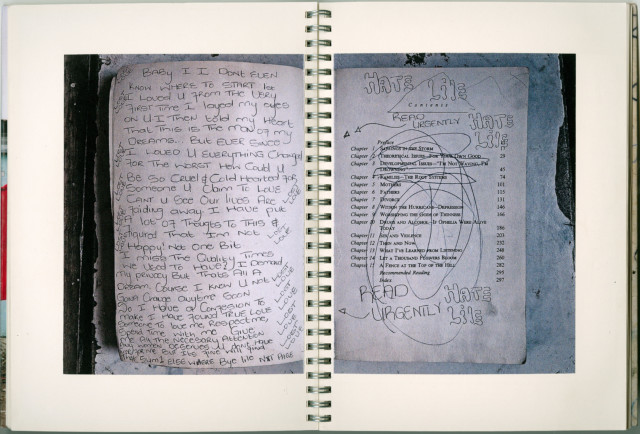 BABY I I DONT EVEN
KNOW WHERE TO START
I LOVED U FROM THE VERY
FIRST TIME I LAYED MY EYES
ON U I THEN TOLD MY HEART
THAT THIS IS THE MAN OF MY
DREAMS... BUT EVER SINCE
I LOVED U EVERYTHING CHANGED
FOR THE WORST HOW COULD U
BE SO CRUEL & COLD HEARTED FOR
SOMEONE U CLAIM TO LOVE
CANT U SEE OUR LIVES ARE
FADING AWAY I HAVE PUT
A LOT OF THOUGHTS TO THIS &
FIGURED THAT I'M NOT
HAPPY! NOT ONE BIT
I MISS THE QUALITY TIMES
WE USED TO HAVE! I DEMAND
MY PRIVACY BUT THATS ALL A
DREAM COURSE I KNOW U NOT
GONA CHANGE ANYTIME SOON
SO I HAVE A CONFESION TO
MAKE I HAVE FOUND TRUE LOVE
SOMEONE TO LOVE ME RESPECT ME,
SPEND TIME WITH ME GIVE
ME ALL THE NECESSARY ATTENTION
LOST
LOVE
LOST
LOVE
HATE LIFE
Contents
READ
URGENTLY
HATE
LIFE
Preface
Chapter 1 SAPLINGS IN THE STORM
Chapter 2 THEORETICAL ISSUES—FOR YOUR OWN GOOD 29
Chapter 3 DEVELOPMENTAL ISSUES—"I'M NOT WAVING, I'M
DROWNING" 45
Chapter 4 FAMILIES—THE ROOT SYSTEMS 74
Chapter 5 MOTHERS 101
Chapter 6 FATHERS 115
Chapter 7 DIVORCE 131
Chapter 8 WITHIN THE HURRICANE—DEPRESSION 146
Chapter 9 WORSHIPING THE GODS OF THINNESS 166
Chapter 10 DRUGS AND ALCOHOL—IF OPHELIA WERE ALIVE
TODAY 186
Chapter 11 SEX AND VIOLENCE 203
Chapter 12 THEN AND NOW 232
Chapter 13 WHAT I'VE LEARNED FROM LISTENING 248
Chapter 14 LET A THOUSAND FLOWERS BLOOM 260
Chapter 15 A FENCE AT THE TOP OF THE HILL 282
Recommended Reading 295
Index 297
READ
URGENTLY
HATE
LIFE